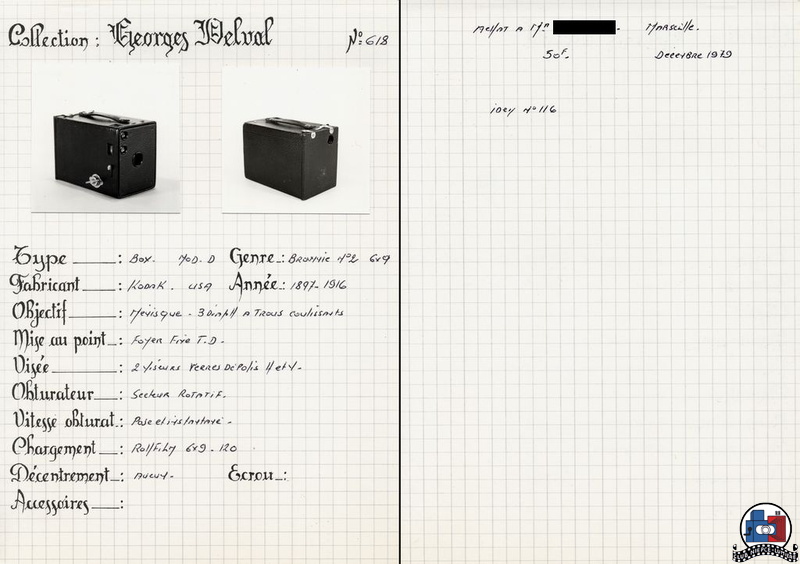 Collection : Georges Delval No 618
Type : Box. Mod. D Genre : Brownie n°2 6x9
Fabricant : Kodak. USA Année : 1897-1916
Objectif : Ménisque - 3 Diaph à Trous coulissants
Mise au point : Foyer Fixe T.D.
Visée : 2 Viseurs Verres Dépolis H et V.
Obturateur : Secteur Rotatif.
Vitesse obturat. : Pose et instantané.
Chargement : RollFilm 6x9 - 120
Décentrement : Aucun. Ecrou :
Accessoires :
Achat à Mr Marseille.
50F. Décembre 1979
idem n°116